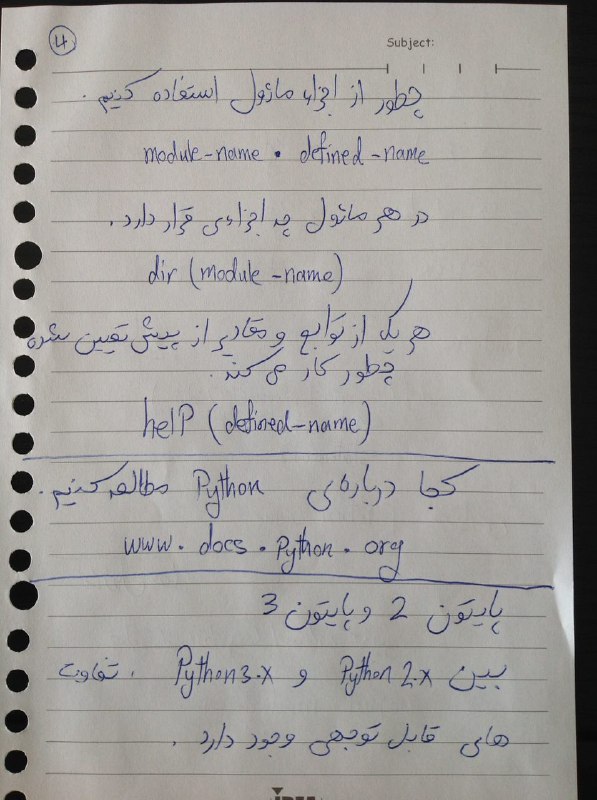 4
Subject:
چطور از اجزاء ماژول استفاده کنیم.
module-name . defined-name
در هر ماژول چه اجزاءی قرار دارد.
dir (module-name)
هر یک از توابع و مقادیر از پیش تعیین شده
چطور کار می کند.
help (defined-name)
کجا درباره‌ی Python مطالعه کنیم.
www.docs.python.org
پایتون 2 و پایتون 3
بین Python 2.x و Python3.x . تفاوت
های قابل توجهی وجود دارد .